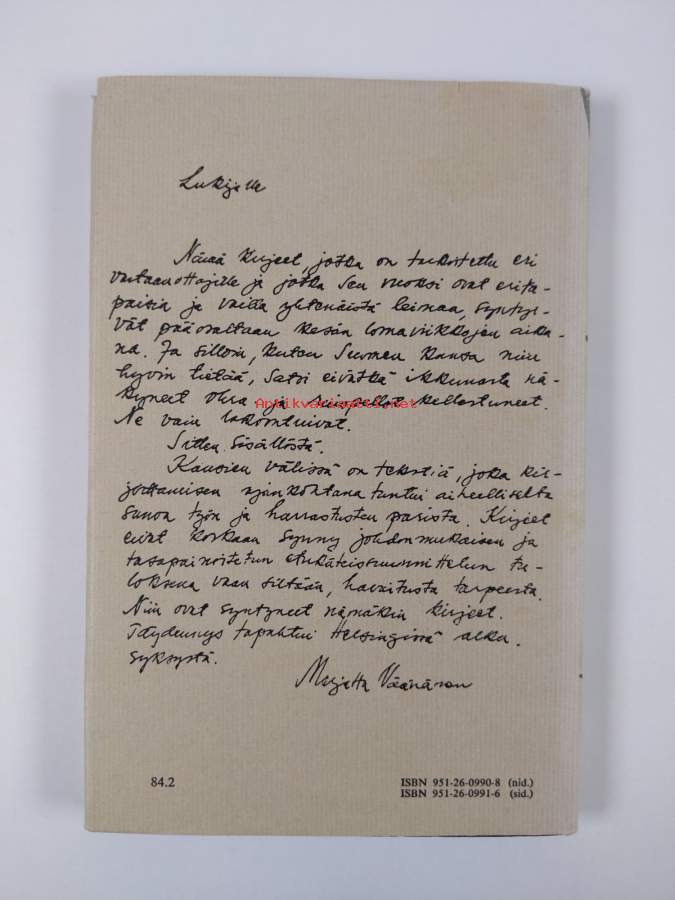 Lukijalle
Nämä kirjeet, jotka on tarkoitettu eri
vastaanottajille ja jotka sen vuoksi ovat erita-
paisia ja vailla yhtenäistä leimaa, synty-
vät pääosaltaan kesän lomaviikkojen aika-
na. Ja silloin, kuten Suomen kansa niin
hyvin tietää, satoi eivätkä ikkunasta nä-
kyneet ohra ja ruispellot kellastuneet.
Antikvariaatti.net
Ne vain lakoontuivat.
Sitten sisällöstä.
Kansien välissä on tekstiä, joka kir-
joittamisen ajankohtana tuntui aiheelliselta
sanoa työn ja harrastusten parista. Kirjeet
eivät koskaan synny johdonmukaisen ja
tasapainoitetun etukäteissuunnittelun tu-
loksena vaan siltään, havaitusta tarpeesta.
Niin ovat syntyneet nämäkin kirjeet.
Täydennys tapahtui Helsingissä alku-
syksystä.
Marjatta Väänänen
84.2
ISBN 951-26-0990-8 (nid.)
ISBN 951-26-0991-6 (sid.)